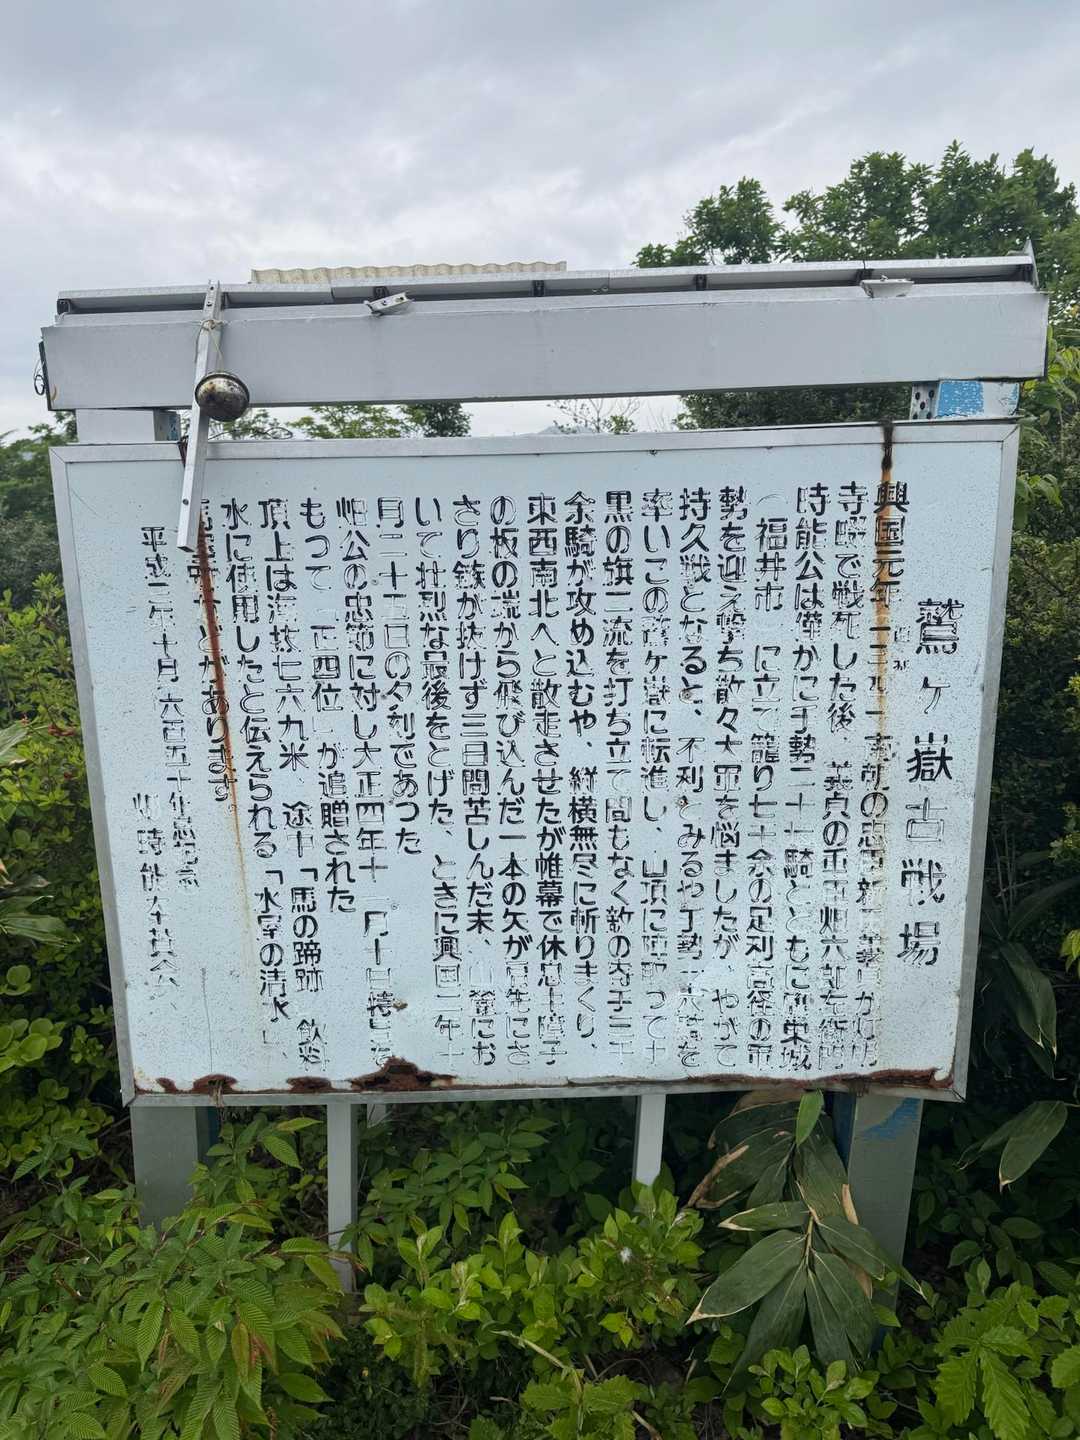 鷲ヶ嶽古戦場
興国元年 南朝の忠臣新田義貞が灯明
寺畷で戦死した後、義貞の重臣畑六郎左衛門
時能公は僅かに手勢二十七騎とともに鷹栄城
（福井市）に立て籠り七十余の足利高経の軍
勢を迎え撃ち散々大軍を悩ましたが、やがて
持久戦となると、不利とみるや手勢十六騎を
率いこの鷲ヶ嶽に転進し、山頂に陣取って十
黒の旗二流を打ち立て間もなく敵の寄手三千
余騎が攻め込むや、縦横無尽に斬りまくり、
東西南北へと散走させたが帷幕で休息上障子
の板の端から飛び込んだ一本の矢が肩先にさ
さり鏃が抜けず三日間苦しんだ末、山麓にお
いて壮烈な最後をとげた、ときに興国二年十
月二十五日の夕刻であつた
畑公の忠節に対し大正四年十一月十日特旨を
もつて「正四位」が追贈された
頂上は海抜七六九米、途中「馬の蹄跡」飲料
水に使用したと伝えられる「水屋の清水」、
などがあります。
平成二年十月 六百五十年忌記念
畑時能